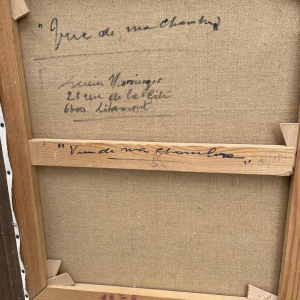 "Vue de ma chambre
Lucien
21 rue de la Cité
6600 Libramont
"Vue de ma chambre"